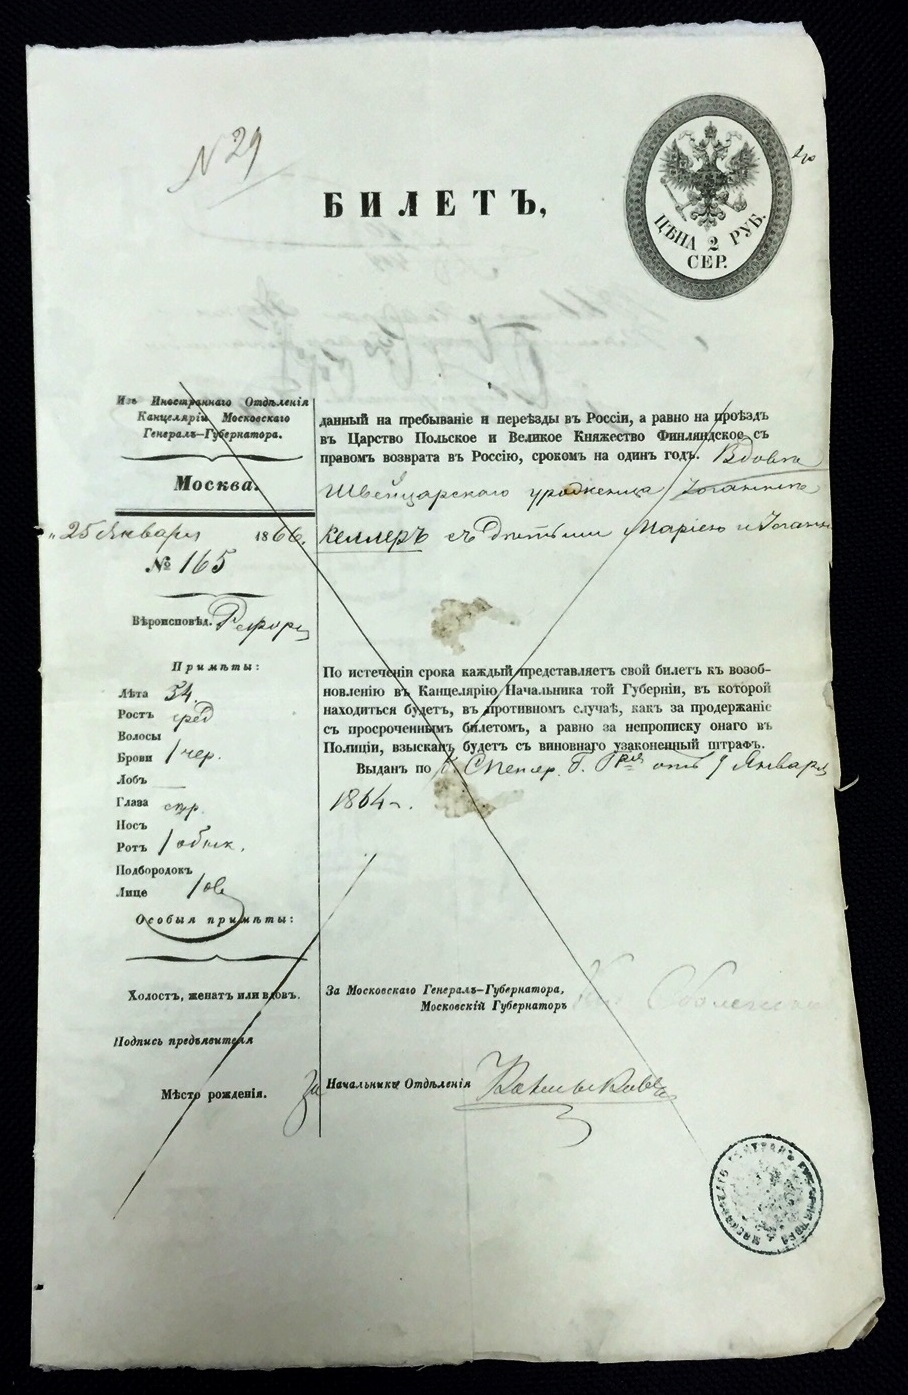 N 29
БИЛЕТЪ,
ЦѢНА 2 РУБ.
СЕР.
Изъ Иностраннаго Отдѣленія
Канцеляріи Московскаго
Генералъ-Губернатора.
Москва.
"25 Января 1866.
№ 165
Вѣроисповѣд. Реформ
Примѣты:
Лѣта 54.
Ростъ сред
Волосы
Брови / чер.
Лобъ —
Глаза сѣр.
Носъ
Ротъ / обык.
Подбородокъ
Лице / ов
Особыя примѣты:
Холостъ, женатъ или вдовъ.
Подпись предъявителя
Мѣсто рожденія.
данный на пребываніе и переѣзды въ Россіи, а равно на проѣздъ
въ Царство Польское и Великое Княжество Финляндское съ
правомъ возврата въ Россію, срокомъ на одинъ годъ. Вдова
Швейцарскаго уроженца Іоганна
Келлеръ съ дѣтьми Маріею и Іоганн
По истеченіи срока каждый представляетъ свой билетъ къ возоб-
новленію въ Канцелярію Начальника той Губерніи, въ которой
находиться будетъ, въ противномъ случаѣ, какъ за продержаніе
съ просроченнымъ билетомъ, а равно за непрописку онаго въ
Полиціи, взысканъ будетъ съ виновнаго узаконенный штрафъ.
Выданъ по Г. Гра отъ 9 Января
1864 г.
За Московскаго Генералъ-Губернатора,
Московскій Губернаторъ Кн. Оболенскій
За Начальника Отдѣленія